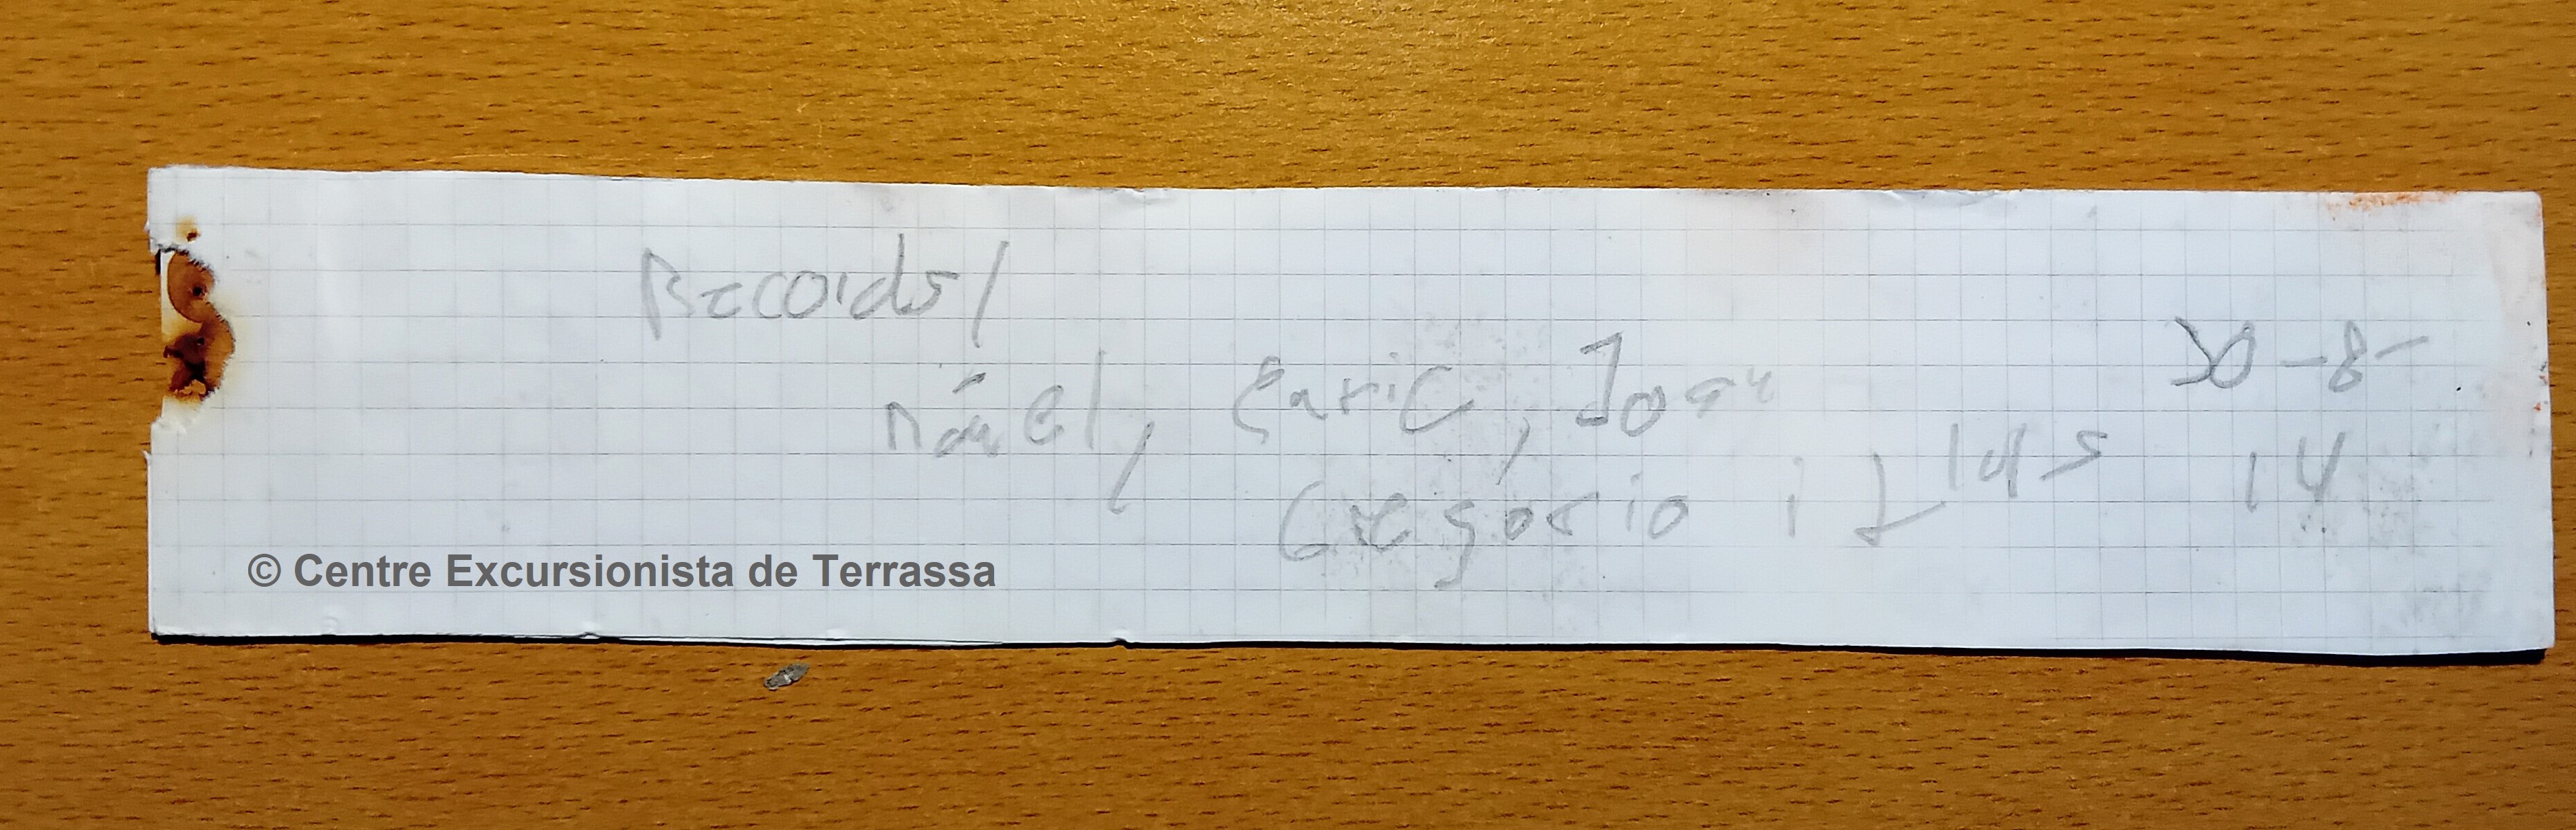 Records!
Manel, Enric, Joan
Gregorio i Lluís
30-8-
14
© Centre Excursionista de Terrassa